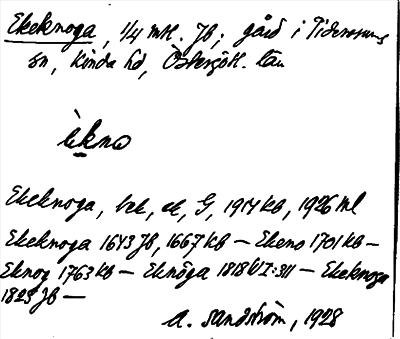 Ekeknoga, 1/4 mtl. JB; gård i Tidersrums
sn, Kinda hd, Östergötl. län
èkno
Ekeknoga, bek, ek, G, 1914 KB, 1926 ml
Ekeknoga 1643 JB, 1667 KB – Ekeno 1701 KB –
Eknog 1763 KB – Eknöga 1818 VI:311 – Ekeknoga
1825 JB –
A. Sandström, 1928